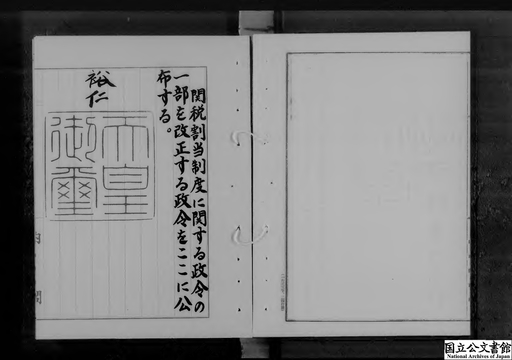 関税割当制度に関する政令の
一部を改正する政令をここに公
布する。
裕仁
天皇
御璽
内閣
国立公文書館
National Archives of Japan